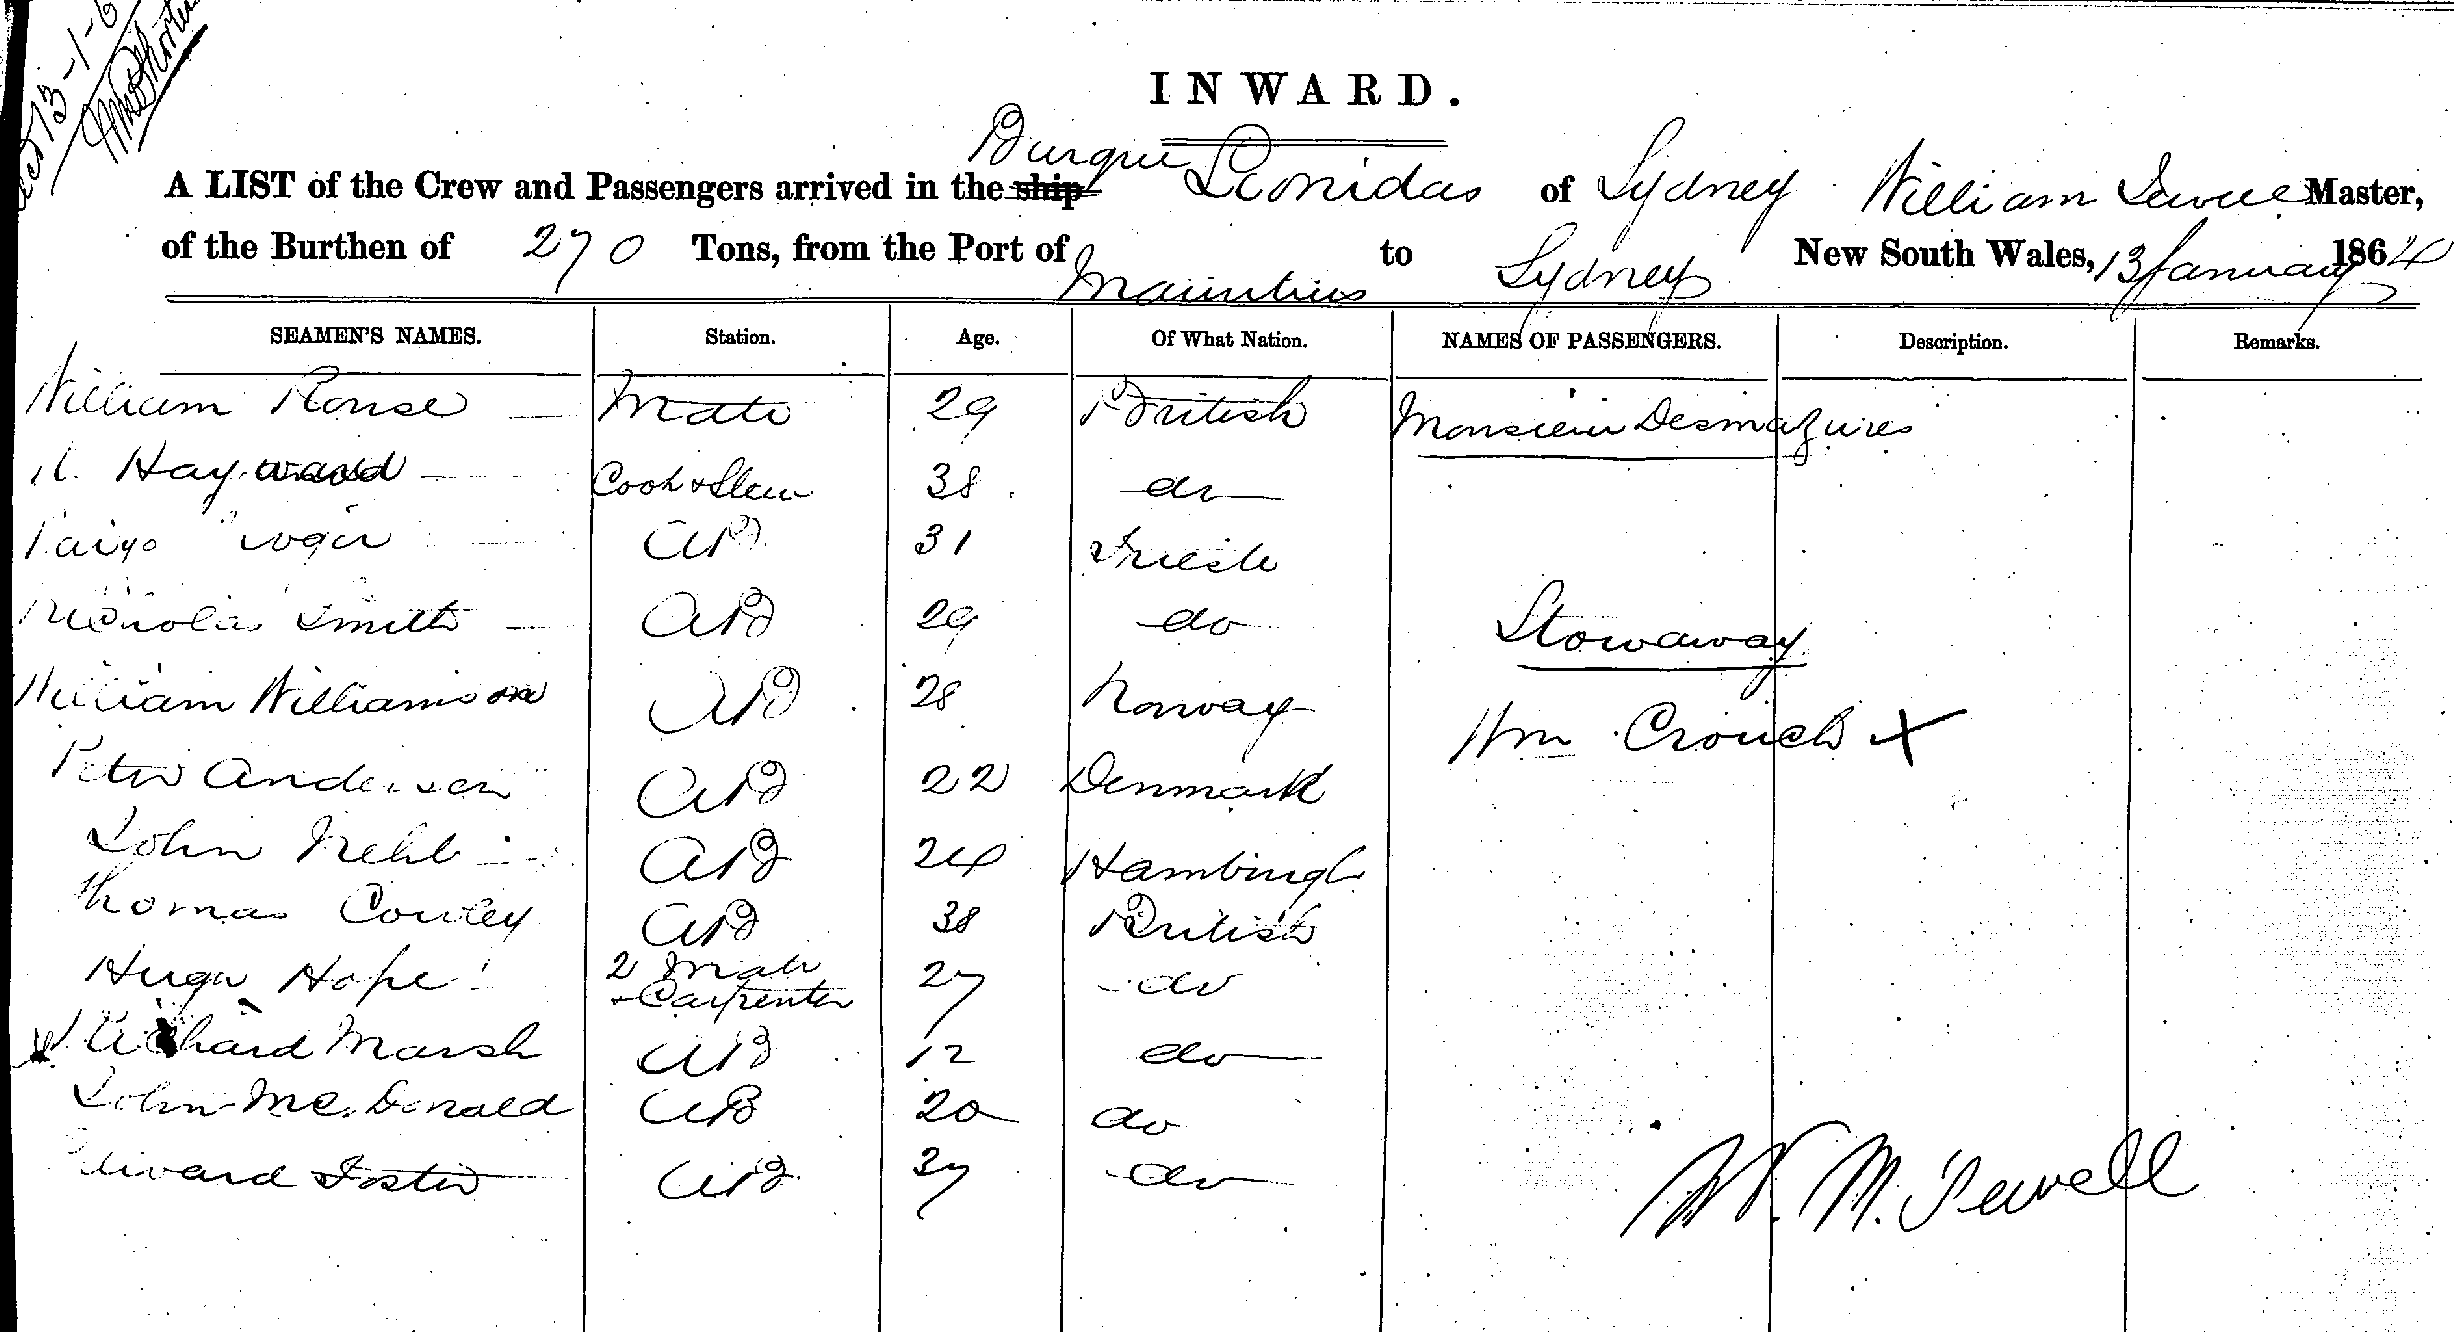 13-1-6
INWARD.
Barque
A LIST of the Crew and Passengers arrived in the ship Leonidas of Sydney William Jewell Master,
of the Burthen of 270 Tons, from the Port of Mauritius to Sydney New South Wales, 13 January 1864
SEAMEN'S NAMES. Station. Age. Of What Nation. NAMES OF PASSENGERS. Description. Remarks.
William Rouse Mate 29 British Monsieur Desmazures
Hayward Cook & Stew 38 do
AB 31 Trieste
Nicholas Smith AB 29 do Stowaway
William Williamson AB 28 Norway Wm Crouch X
Peter Andersen AB 22 Denmark
John AB 24 Hamburgh
Thomas Cowley AB 38 British
Hugh Hope 2 Mate & Carpenter 27 do
X Richard Marsh AB 12 do
John McDonald AB 20 do
Edward Foster AB 37 do
W. M. Jewell